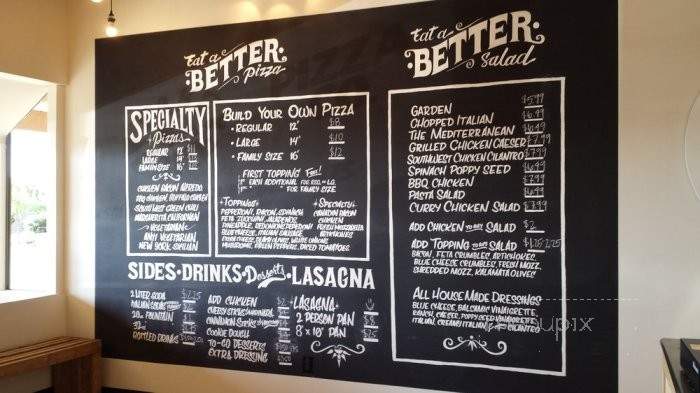 Eat a
BETTER
Pizza
SPECIALTY
Pizza's
REGULAR 12" $11
LARGE 14"
FAMILY SIZE 16"
CHICKEN BACON ALFREDO
BBQ CHICKEN, BUFFALO CHICKEN
SOUTHWEST GREEN CHILI
MARGHERITA CALIFORNIAN
VEGETARIAN
VEGETARIAN
NEW YORK SICILIAN
BUILD YOUR OWN PIZZA
• REGULAR 12" $8
• LARGE 14" $10
• FAMILY SIZE 16" $12
FIRST TOPPING Free!
EACH ADDITIONAL FOR REG. - LG.
FOR FAMILY SIZE
TOPPINGS
PEPPERONI, BACON, SPINACH
FETA, ZUCCHINI, JALAPENOS
PINEAPPLE, RED ONIONS, PEPPERONI
BLUE CHEESE, ITALIAN SAUSAGE
BLACK OLIVES, WHITE ONIONS
MUSHROOMS, GREEN PEPPERS, DICED TOMATOES
SPECIALTY
CANADIAN BACON
CHICKEN
FRESH MOZZARELLA
ARTICHOKES
SIDES • DRINKS • Desserts • LASAGNA
2 LITER SODA $2.75
ITALIAN SODAS
20oz FOUNTAIN
32oz
BOTTLED DRINKS
ADD CHICKEN $2
CHEESY STICKS W/ MARINARA
CINNAMON STICKS
COOKIE DOUGH
TO-GO DESSERTS
EXTRA DRESSING
LASAGNA
2 PERSON PAN
8" x 10" PAN
Eat a
BETTER
Salad
GARDEN $5.99
CHOPPED ITALIAN $6.99
THE MEDITERRANEAN $6.49
GRILLED CHICKEN CAESER $7.99
SOUTHWEST CHICKEN CILANTRO $7.99
SPINACH POPPY SEED $6.99
BBQ CHICKEN $7.99
PASTA SALAD $6.99
CURRY CHICKEN SALAD $3.99
ADD CHICKEN TO ANY SALAD $2
ADD TOPPING TO ANY SALAD $1.25/2.25
BACON, FETA CRUMBLES, ARTICHOKES,
BLUE CHEESE CRUMBLES, FRESH MOZZ,
SHREDDED MOZZ, KALAMATA OLIVES
ALL HOUSE MADE DRESSINGS
BLUE CHEESE, BALSAMIC VINAIGRETTE
RANCH, CAESER, POPPYSEED VINAIGRETTE
ITALIAN, CREAMY ITALIAN, CILANTRO